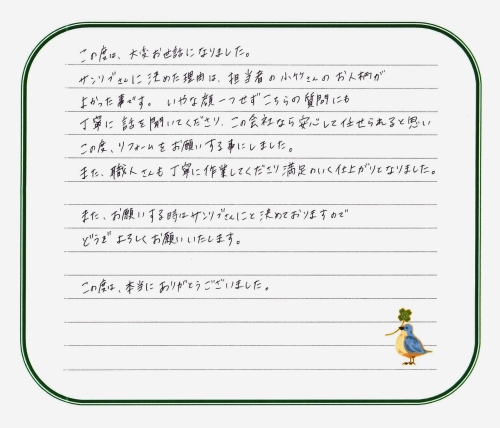 この度は、大変お世話になりました。
サンリブさんに決めた理由は、担当者の小竹さんのお人柄が
よかった事です。いやな顔一つせずこちらの質問にも
丁寧に話を聞いてくださり、この会社なら安心して任せられると思い
この度、リフォームをお願いする事にしました。
また、職人さんも丁寧に作業してくださり満足のいく仕上がりとなりました。
また、お願いする時はサンリブさんにと決めておりますので
どうぞよろしくお願いいたします。
この度は、本当にありがとうございました。